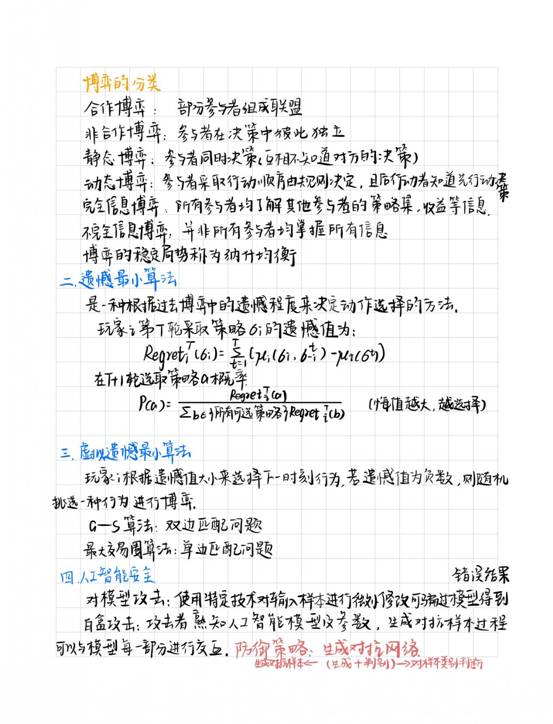 博弈的分类
合作博弈: 部分参与者组成联盟
非合作博弈: 参与者在决策中彼此独立
静态博弈: 参与者同时决策(互相不知道对方的决策)
动态博弈: 参与者采取行动顺序由规则决定, 且后行动者知道先行动者决策
完全信息博弈: 所有参与者均了解其他参与者的策略集、收益等信息.
不完全信息博弈: 并非所有参与者均掌握所有信息
博弈的稳定局势称为纳什均衡
二.遗憾最小算法
是一种根据过去博弈中的遗憾程度来决定动作选择的方法.
玩家i第T轮采取策略σi的遗憾值为:
Regret_i^T(σi)=Σ_{t=1}^T(μi(σi,σ_{-i}^t)-μi(σ^t))
在T+1轮选取策略a概率
P(a)= Regret_i^T(a) / Σ_{b∈{所有可选策略}}Regret_i^T(b) (悔值越大,越选择)
三.虚拟遗憾最小算法
玩家i根据遗憾值大小来选择下一时刻行为,若遗憾值为负数,则随机
挑选一种行为进行博弈.
G—S算法: 双边匹配问题
最大交易圈算法:单边匹配问题
四.人工智能安全
对模型攻击:使用特定技术对输入样本进行微小修改可骗过模型得到错误结果
白盒攻击:攻击者熟知人工智能模型及参数,生成对抗样本过程
可以与模型每一部分进行交互. 防御策略:生成对抗网络.
生成对抗样本←(生成+判别)→对样本类别判断